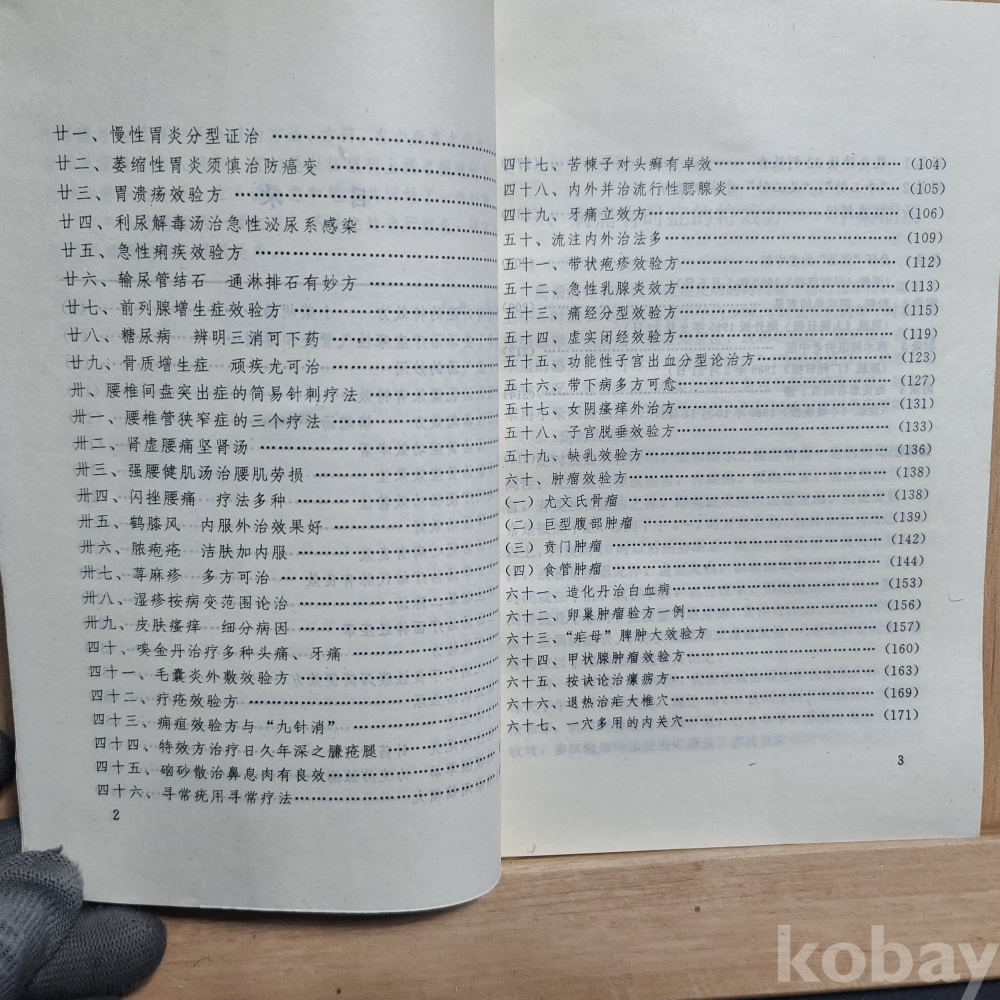 廿一、慢性胃炎分型证治
廿二、萎缩性胃炎须慎治防癌变
廿三、胃溃疡效验方
廿四、利尿解毒汤治急性泌尿系感染
廿五、急性痢疾效验方
廿六、输尿管结石 通淋排石有妙方
廿七、前列腺增生症效验方
廿八、糖尿病 辨明三消可下药
廿九、骨质增生症 顽疾尤可治
卅、腰椎间盘突出症的简易针刺疗法
卅一、腰椎管狭窄症的三个疗法
卅二、肾虚腰痛坚肾汤
卅三、强腰健肌汤治腰肌劳损
卅四、闪挫腰痛 疗法多种
卅五、鹤膝风 内服外治效果好
卅六、脓疱疮 洁肤加内服
卅七、荨麻疹 多方可治
卅八、湿疹按病变范围论治
卅九、皮肤瘙痒 细分病因
四十、嗅金丹治疗多种头痛、牙痛
四十一、毛囊炎外敷效验方
四十二、疔疮效验方
四十三、痈疽效验方与“九针消”
四十四、特效方治疗日久年深之臁疮腿
四十五、硇砂散治鼻息肉有良效
四十六、寻常疣用寻常疗法
2
四十七、苦楝子对头癣有卓效 (104)
四十八、内外并治流行性腮腺炎 (105)
四十九、牙痛立效方 (106)
五十、流注内外治法多 (109)
五十一、带状疱疹效验方 (112)
五十二、急性乳腺炎效方 (113)
五十三、痛经分型效验方 (115)
五十四、虚实闭经效验方 (119)
五十五、功能性子宫出血分型论治方 (123)
五十六、带下病多方可愈 (127)
五十七、女阴瘙痒外治方 (131)
五十八、子宫脱垂效验方 (133)
五十九、缺乳效验方 (136)
六十、肿瘤效验方 (138)
(一)尤文氏骨瘤 (138)
(二)巨型腹部肿瘤 (139)
(三)贲门肿瘤 (142)
(四)食管肿瘤 (144)
六十一、造化丹治白血病 (153)
六十二、卵巢肿瘤验方一例 (156)
六十三、“疟母”脾肿大效验方 (157)
六十四、甲状腺肿瘤效验方 (160)
六十五、按诀论治瘰疬方 (163)
六十六、退热治疟大椎穴 (169)
六十七、一穴多用的内关穴 (171)
3
kobay